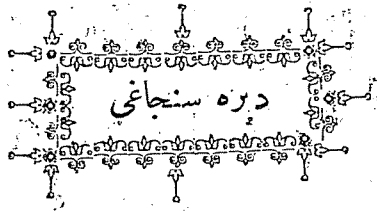 دبره سنجاغی